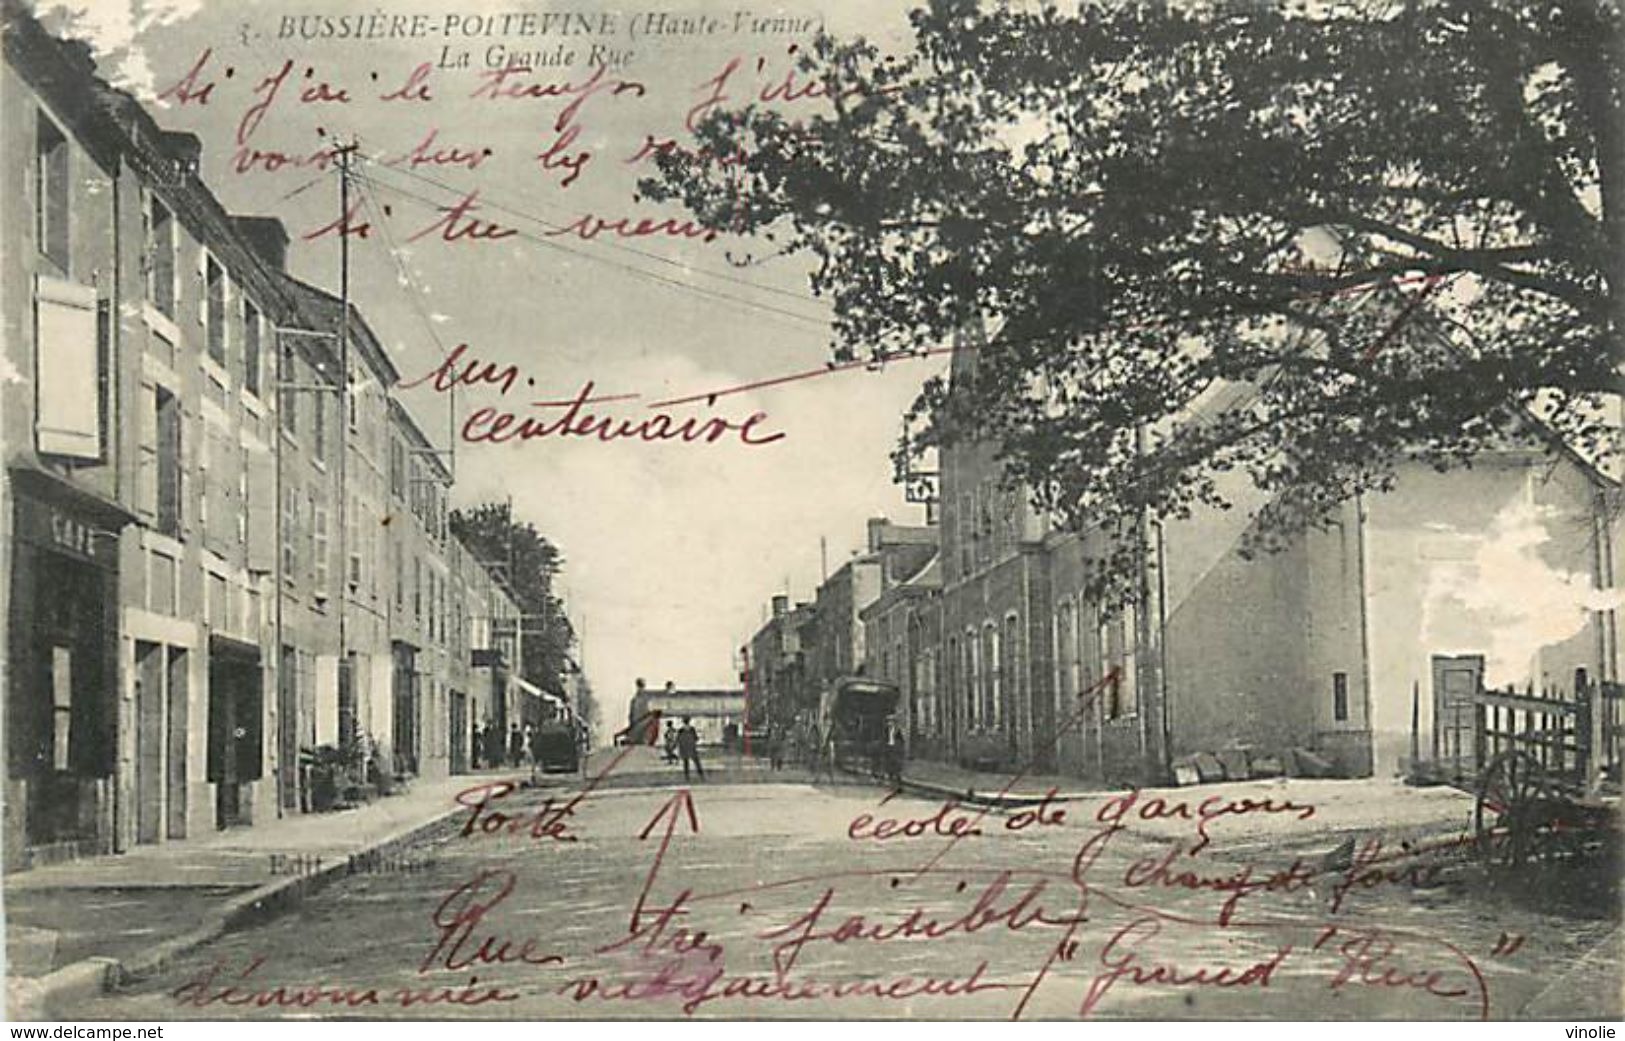 3. BUSSIÈRE-POITEVINE (Haute-Vienne)
La Grande Rue
si j'ai le temps j'irai
voir sur les
si tu viens
Un
centenaire
CAFE
Poste
école de garçons
champ de foire
Edit.
Rue très paisible
dénommée vulgairement "Grand'Rue"
www.delcampe.net
vinolie